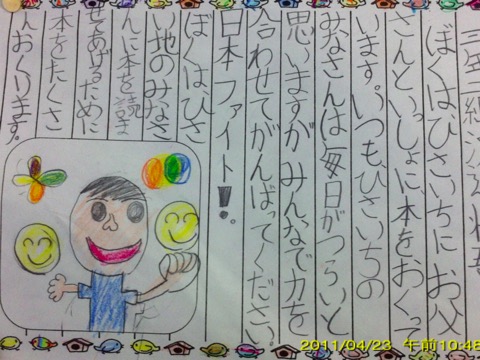 三年一組
ぼくは、ひさいちにお父
さんといっしょに、本をおくって
います。いつも、ひさいちの
みなさんは毎日がつらいと
思いますが みんなで力を
合わせてがんばってください。
日本ファイト!。
ぼくはひさ
い地のみなさ
んに本を読ま
せてあげるために
本をたくさ
んおくります。
2011/04/23 午前10:48